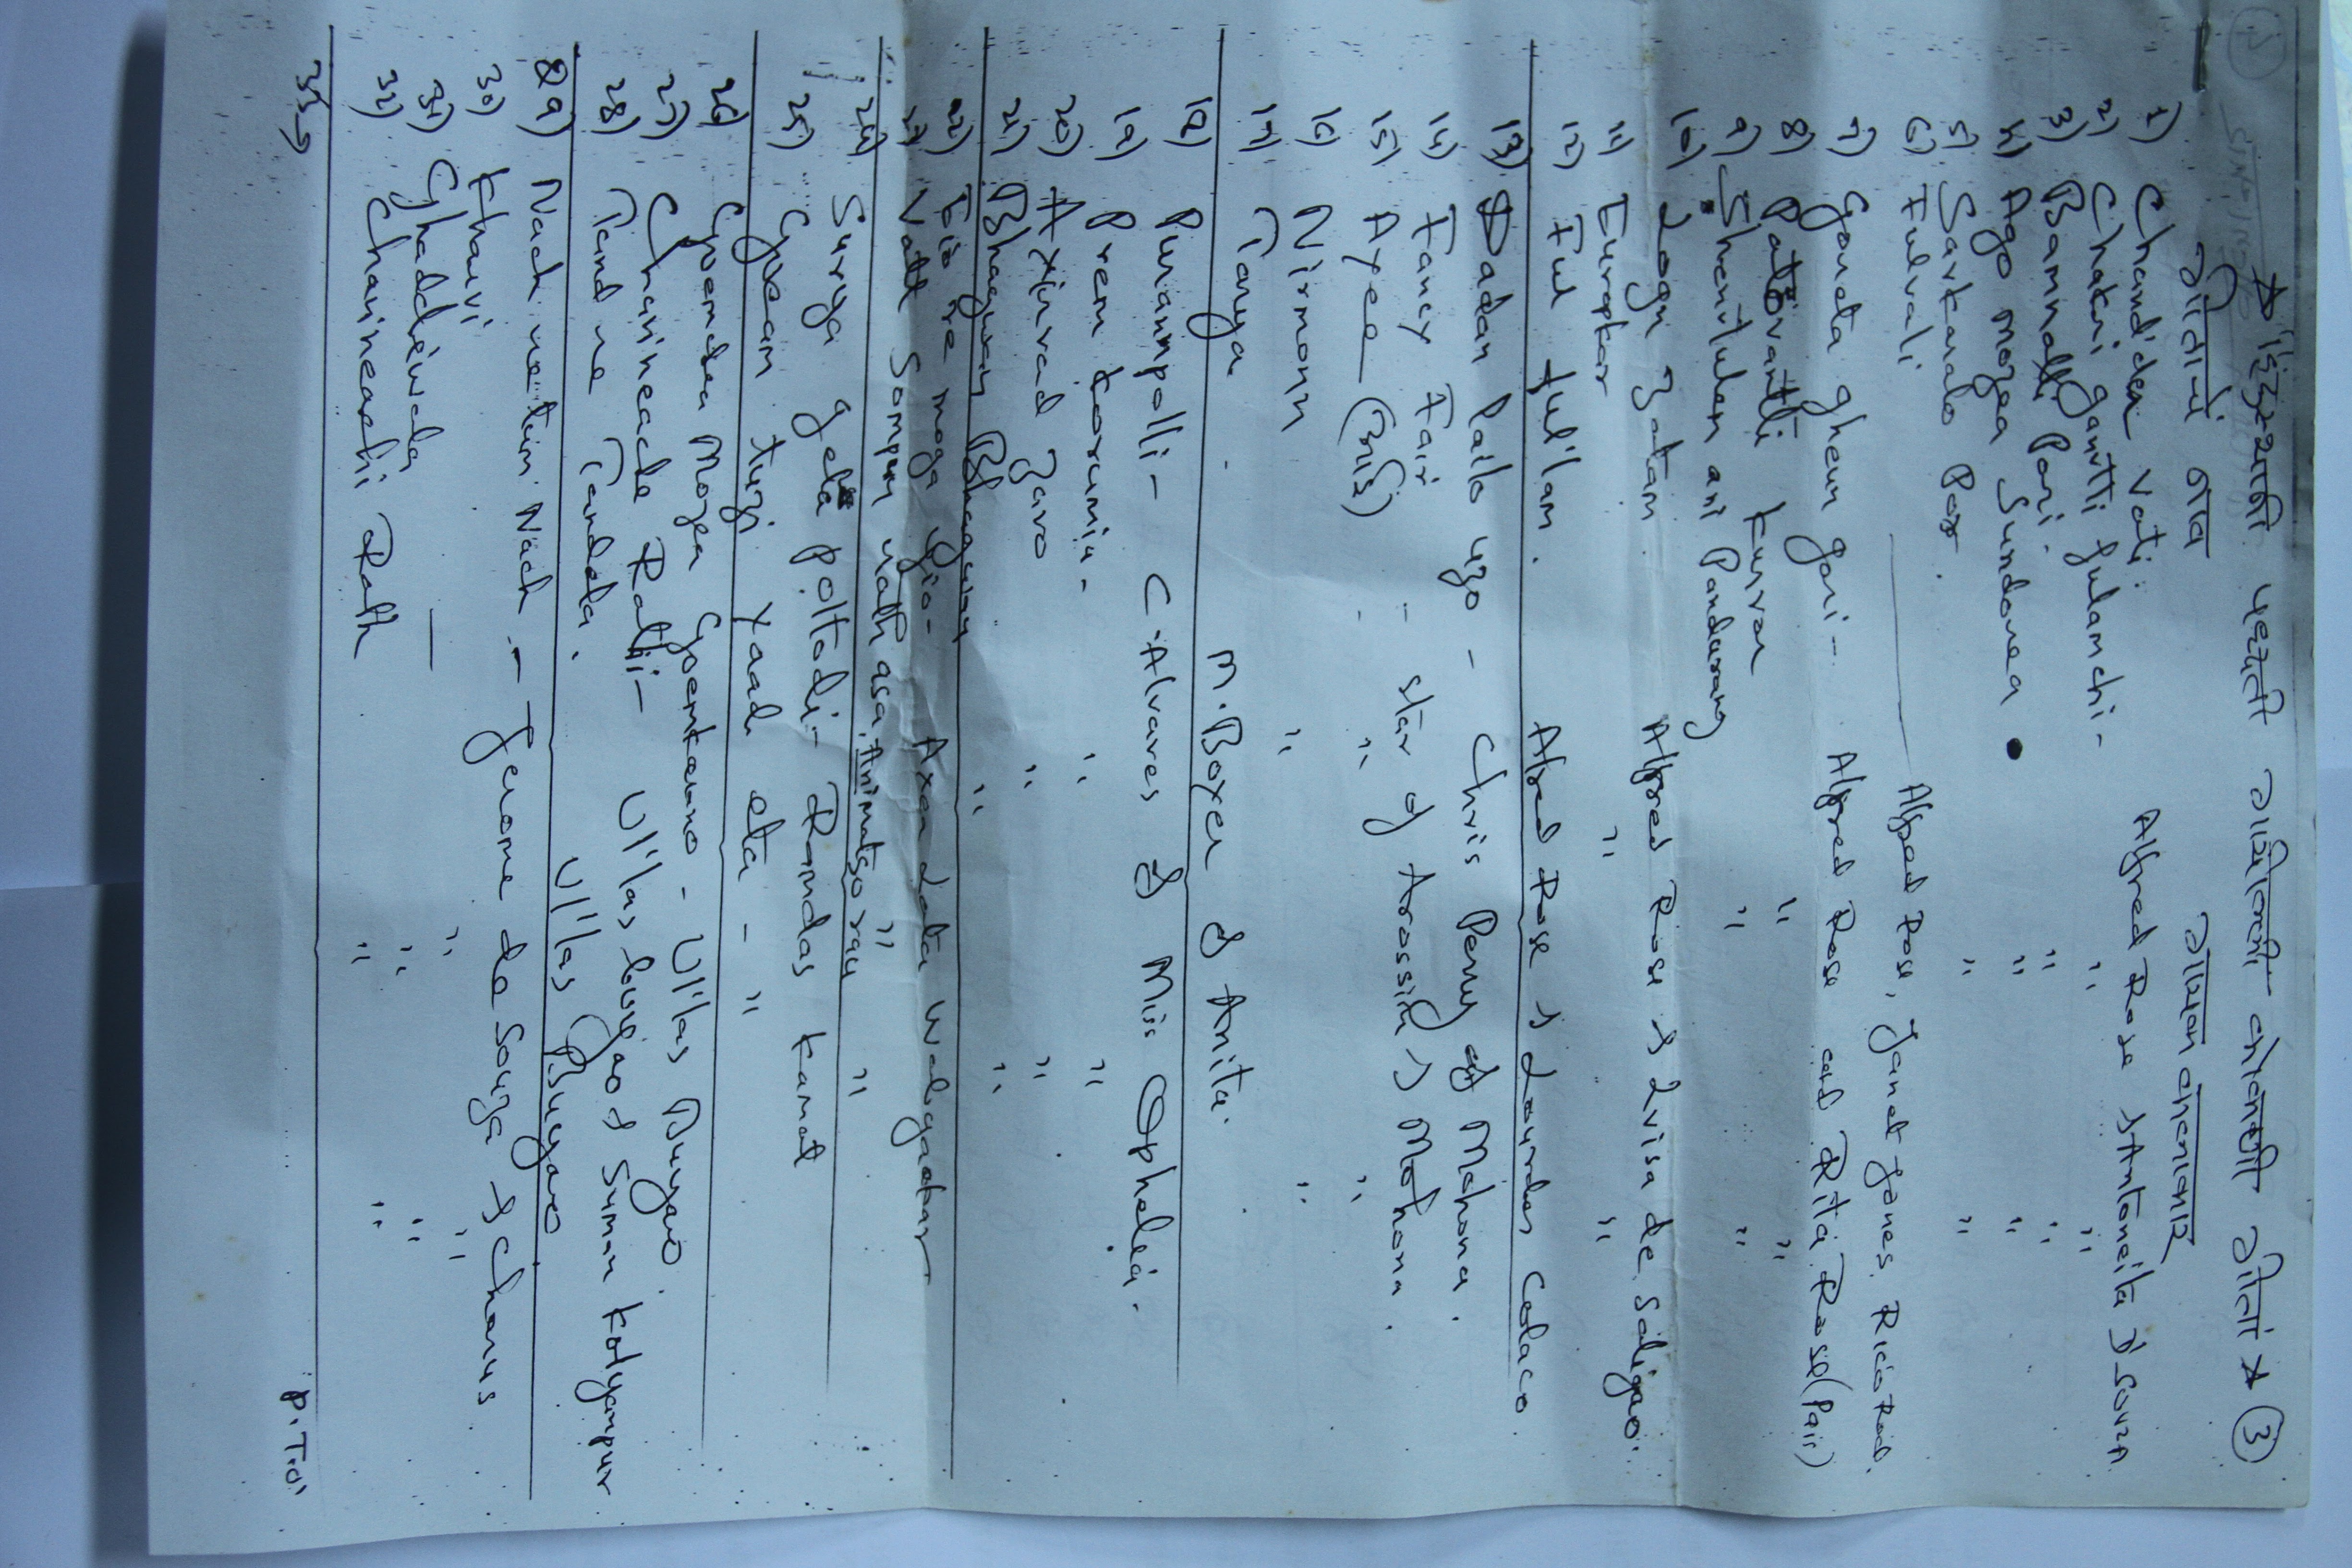 * हिंदुस्थानी पद्दती गायिलली कोंकणी गीतां * 3
गीताचें नांव गायन कलाकार
1) Chandiden Vati: Alfred Rose & Antoneita D'Souza
2) Chakri gantti fulanchi - " "
3) Bamnalli Pori. " "
4) Ago mozea Sundorea " "
5) Sarkarals Por. " "
6) Fulvali Alfred Rose, Janet Jones, Ricio Rod.
7) Goneta gheun gori - Alfred Rose and Rita Rose (Pair)
8) Pativantti Kurvar " "
9) Shenitulem ani Pandurang " "
10) Logn Zatam. Alfred Rose & Lvisa de Saligao.
11) Eurapkar " "
12) Ful fulilam. Alfred Rose & Lourdes Colaco
13) Dadan Pailo uzo - Chris Perry & Mohana.
14) Fancy Fair - Star of Arossim & Mohana.
15) Axee (Mis) " "
16) Nirmonn " "
17) Tanya. M. Boyer & Anita.
18) Purannpolli - C. Alvares & Miss Ophelia.
19) Prem Korumia - " "
20) Axirvad Zavo " "
21) Bhagwan Bhagwan " "
22) Eio re moga Eio - Axa Lata Wolgaokar
23) Vatt Sompun voth asa. "
24) Surya gela poltodi - Ramdas Kamat
25) Goream tuzi yaad eta - "
26) Goemchea Mozea Goenkarano - Ulhas Buyao.
27) Channeache Rati - Ulhas Buyao & Suman Kolyanpur
28) Tand re Tandela. Ulhas Buyao
29) Nach ne tim Nach - Jerome de Souza & Chorus
30) Kharvi " "
31) Ghaddiewala - " "
32) Channeachi Rath " "
33→
P.T.O.